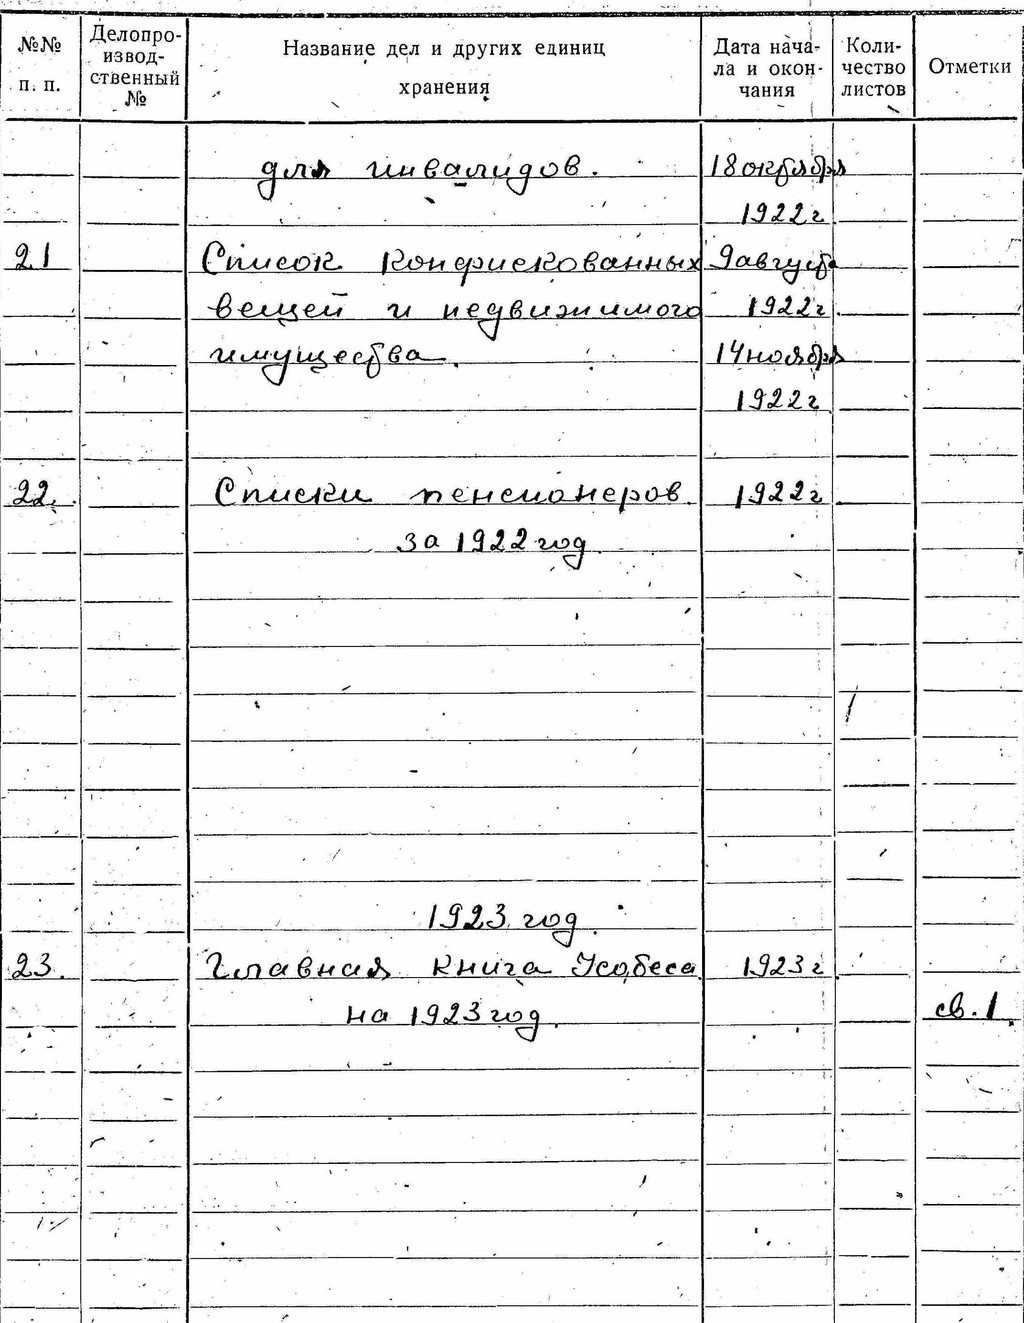 №№ п. п.
Делопро-
извод-
ственный
№
Название дел и других единиц
хранения
Дата нача-
ла и окон-
чания
Коли-
чество
листов
Отметки
для инвалидов. 18 октября
1922 г
21 Список конфискованных 9 августа
вещей и недвижимого 1922 г
имущества. 14 ноября
1922 г
22. Списки пенсионеров 1922 г
за 1922 год
1923 год.
23. Главная книга Усобеса 1923 г
на 1923 год. св. 1.